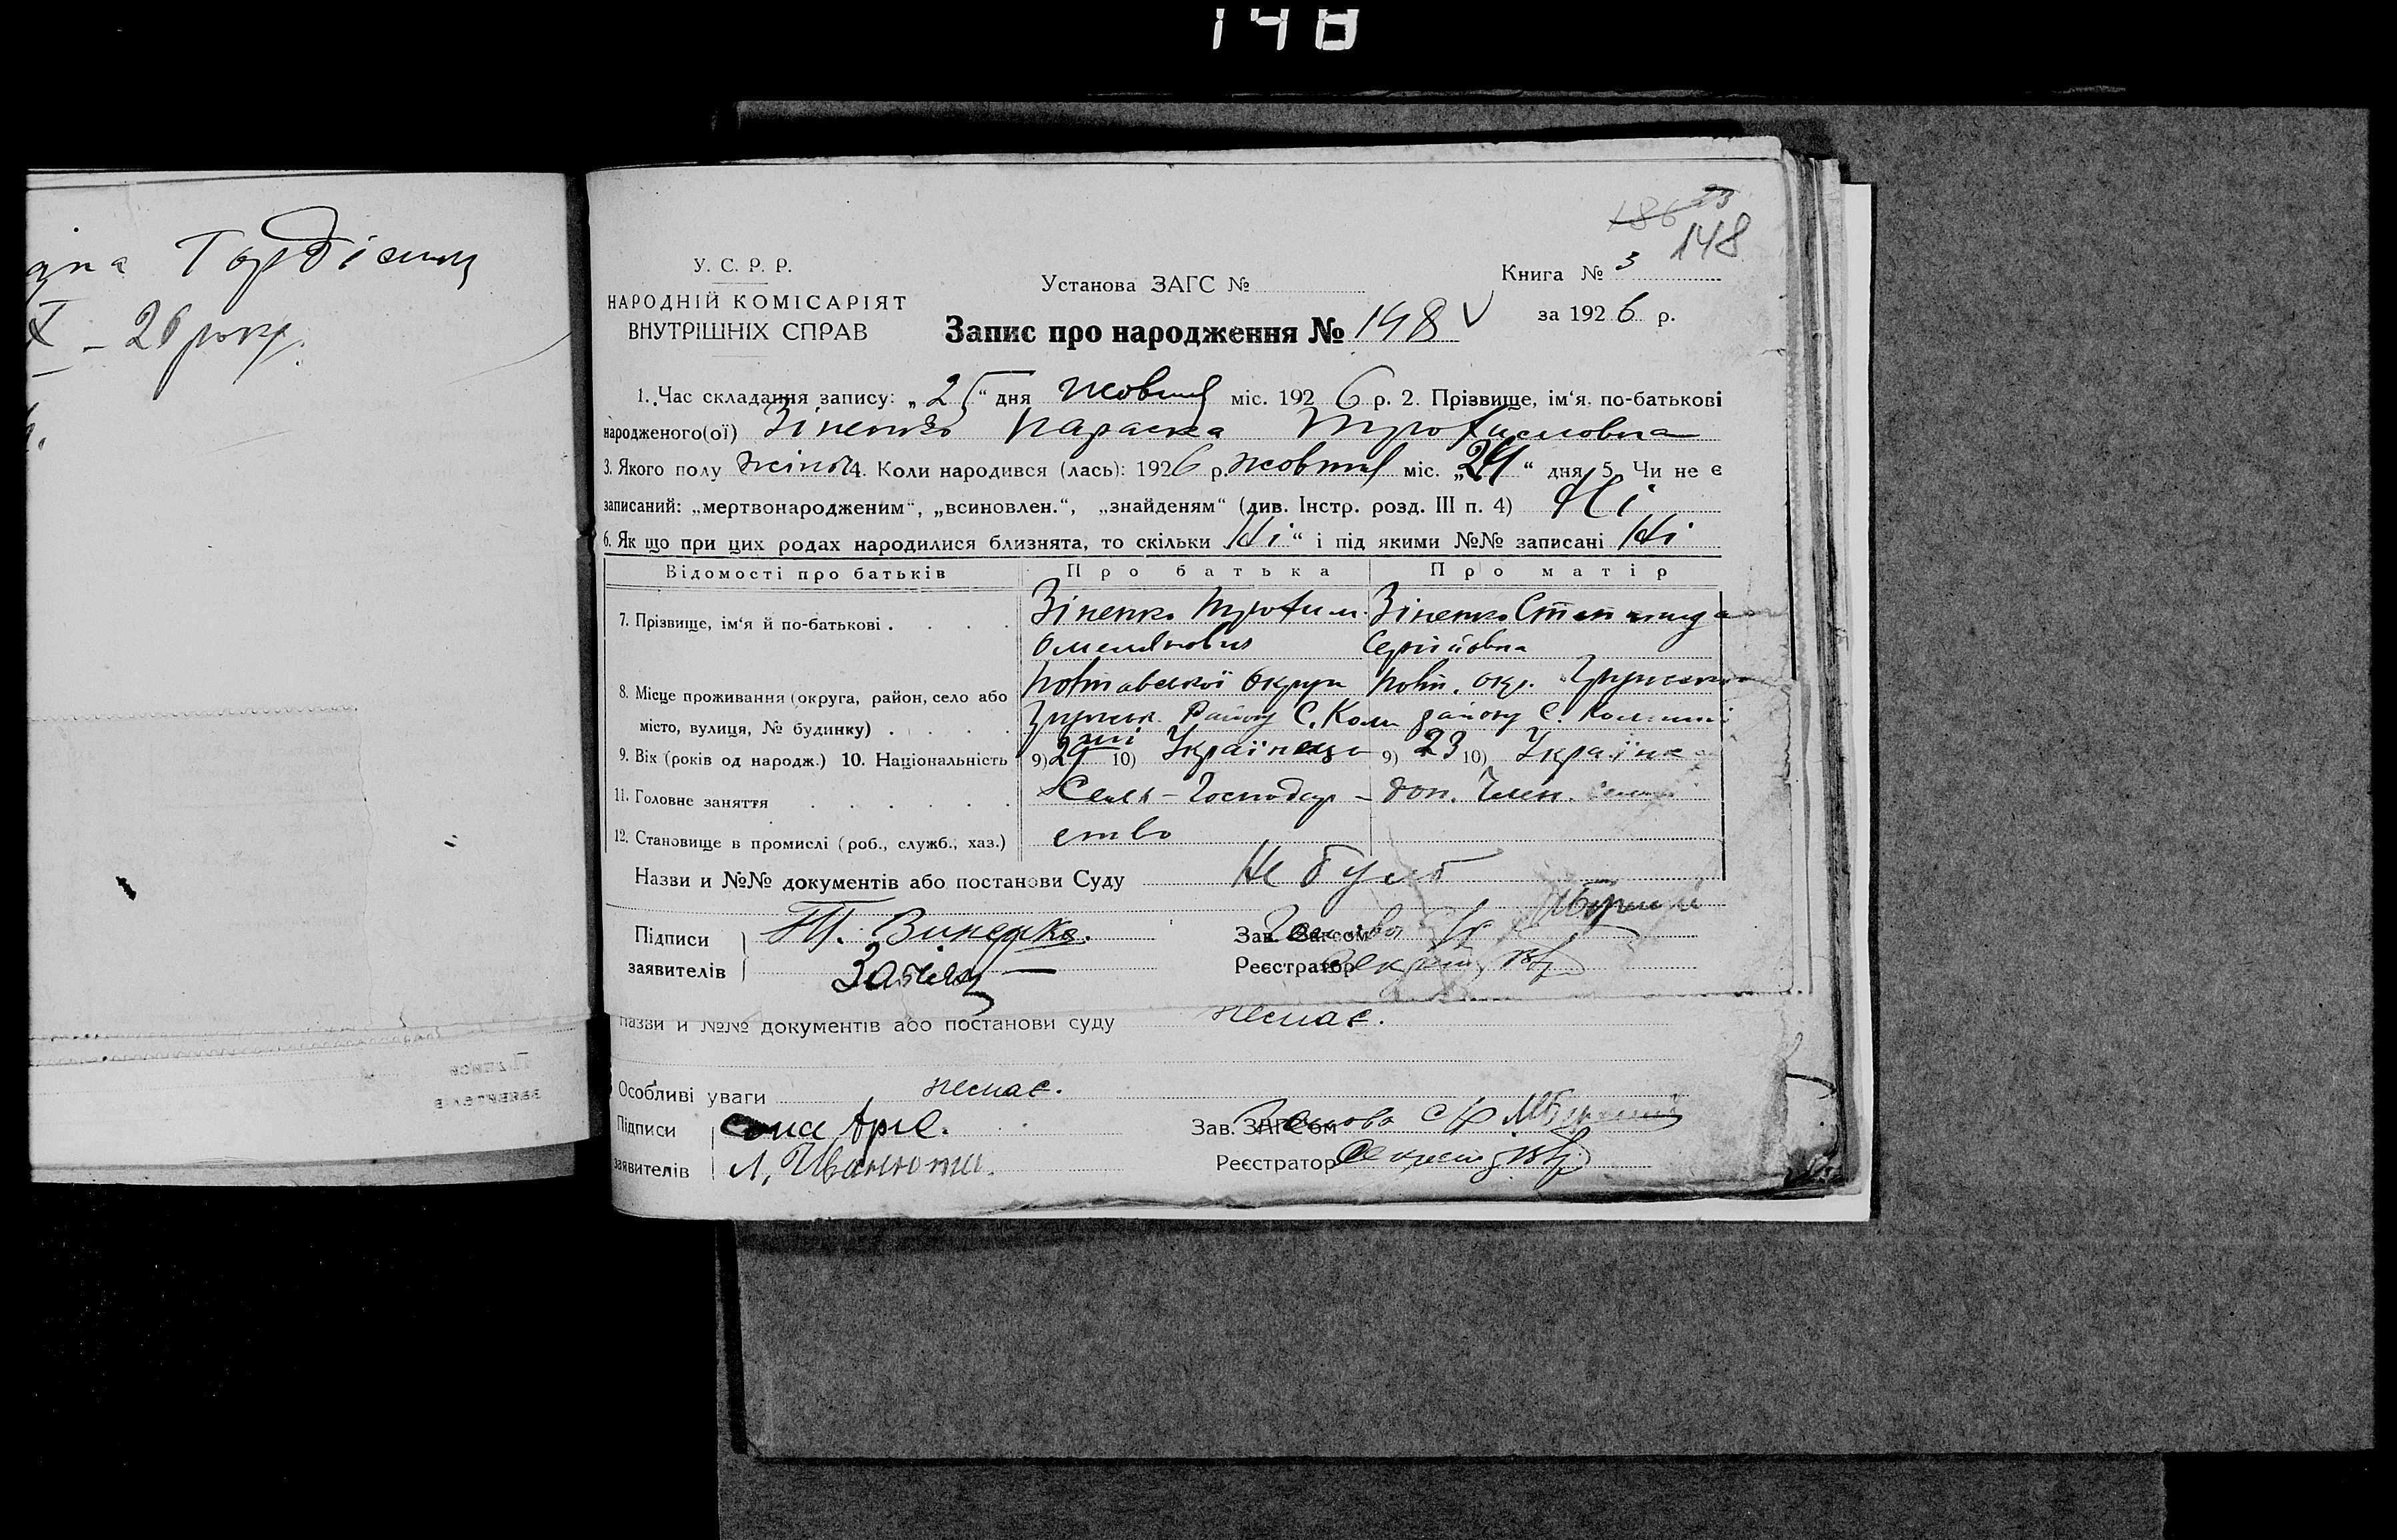 148
Гордієнц
20 року.
186 23
148
У. С. Р. Р.
НАРОДНІЙ КОМІСАРІЯТ
ВНУТРІШНІХ СПРАВ
Установа ЗАГС №
Книга № 3
за 1926 р.
Запис про народження № 148 V
1. Час складання запису: „25“ дня жовтня міс. 1926 р. 2. Прізвище, ім‘я, по-батькові
народженого(ої) Зіненко Параска Трофимовна
3. Якого полу жіноч 4. Коли народився (лась): 1926 р. жовтня міс. „24“ дня 5. Чи не є
записаний: „мертвонародженим“, „всиновлен.“, „знайденям“ (див. Інстр. розд. III п. 4) Ні
6. Як що при цих родах народилися близнята, то скільки Ні “ і під якими №№ записані Ні
Відомості про батьків Про батька Про матір
7. Прізвище, ім‘я й по-батькові . . . . Зіненко Трофим Зіненко Степанида
Омелянович Сергіївна
8. Місце проживання (округа, район, село або Полтавської округи Полт. окр.
місто, вулиця, № будинку) . . . . Району С. Кол району С.
9. Вік (років од народж.) 10. Національність 9) 29 10) Українець 9) 23 10) Українка
11. Головне заняття . . . . . . Сель-Господар- доп. член.
12. Становище в промислі (роб., служб., хаз.) ство
Назви и №№ документів або постанови Суду Не було
Підписи Т. Зиненко.
заявителів
Зав. Загсом Голова
Реєстратор Секрет
назви и №№ документів або постанови суду немає.
Особливі уваги немає.
Підписи
заявителів Л. Иванюта.
Зав. ЗАГС‘ом Голова
Реєстратор Секрет